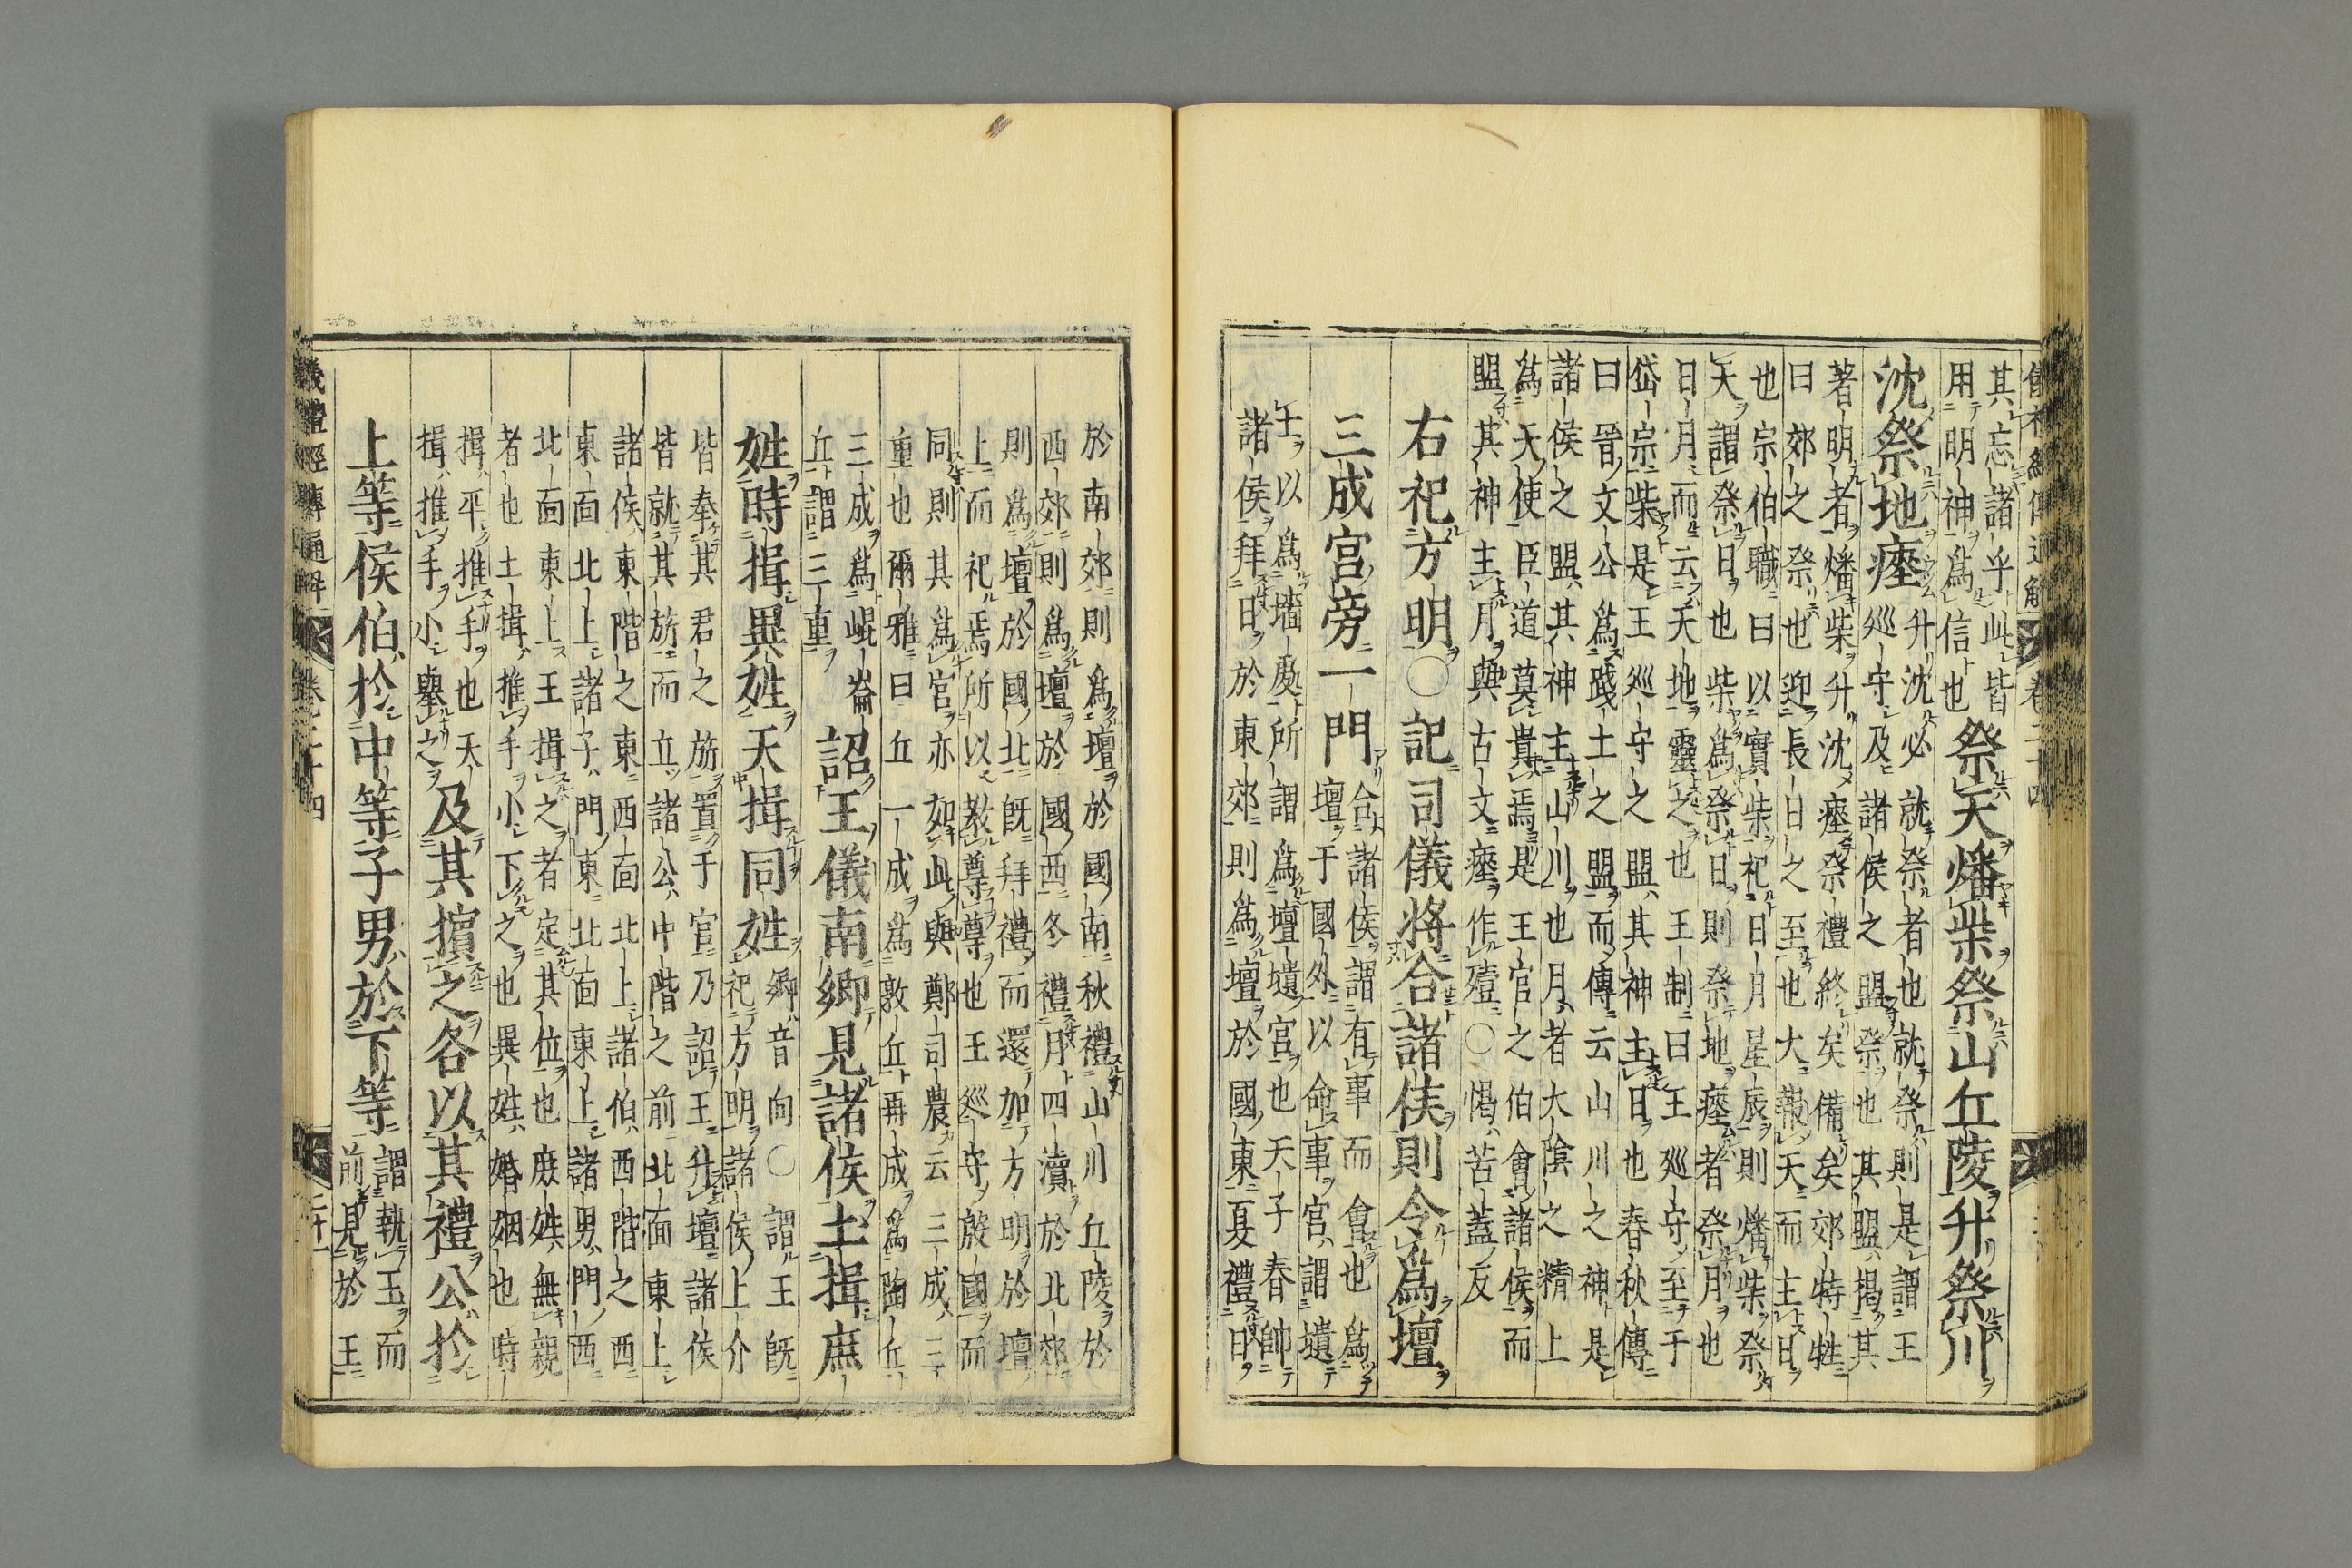 儀禮經傳通解 卷二十四
其忘諸乎此皆
用明神爲信也
祭天燔柴祭山丘陵升祭川
沈祭地瘞
升沈必就祭者也就祭則是謂王
巡守及諸侯之盟祭也其盟揭其
著明者燔柴升沈瘞祭禮終矣備矣郊特牲
曰郊之祭也迎長日之至也大報天而主日
也宗伯職曰以實柴祀日月星辰則燔柴祭
天謂祭日也柴爲祭日則祭地瘞者祭月也
日月而云天地靈之也王制曰王巡守至于
岱宗柴是王巡守之盟其神主日也春秋傳
曰晉文公爲踐土之盟而傳云山川之神是
諸侯之盟其神主山川也月者大陰之精上
爲天使臣道莫貴焉是王官之伯會諸侯而
盟其神主月與古文瘞作殪○愒苦蓋反
右祀方明○記司儀將合諸侯則令爲壇
三成宮旁一門
合諸侯謂有事而會也爲
壇于國外以命事宮謂壝
土以爲墻處所謂爲壇壝宮也天子春帥
諸侯拜日於東郊則爲壇於國東夏禮日
於南郊則爲壇於國南秋禮山川丘陵於
西郊則爲壇於國西冬禮月四瀆於北郊
則爲壇於國北既拜禮而還加方明於壇
上而祀焉所以敎尊尊也王巡守殷國而
同則其爲宮亦如此與鄭司農云三成三
重也爾雅曰丘一成爲敦丘再成爲陶丘
三成爲崐崙
丘謂三重
詔王儀南鄉見諸侯土揖庶
姓時揖異姓天揖同姓
鄉音向○謂王既
祀方明諸侯上介
皆奉其君之旂置于宮乃詔王升壇諸侯
皆就其旂而立諸公中階之前北面東上
諸侯東階之東西面北上諸伯西階之西
東面北上諸子門東北面東上諸男門西
北面東上王揖之者定其位也庶姓無親
者也土揖推手小下之也異姓婚姻也時
揖平推手也天
揖推手小舉之
及其擯之各以其禮公於
上等侯伯於中等子男於下等
謂執玉而
前見於王
儀禮經傳通解 卷二十四
二十一